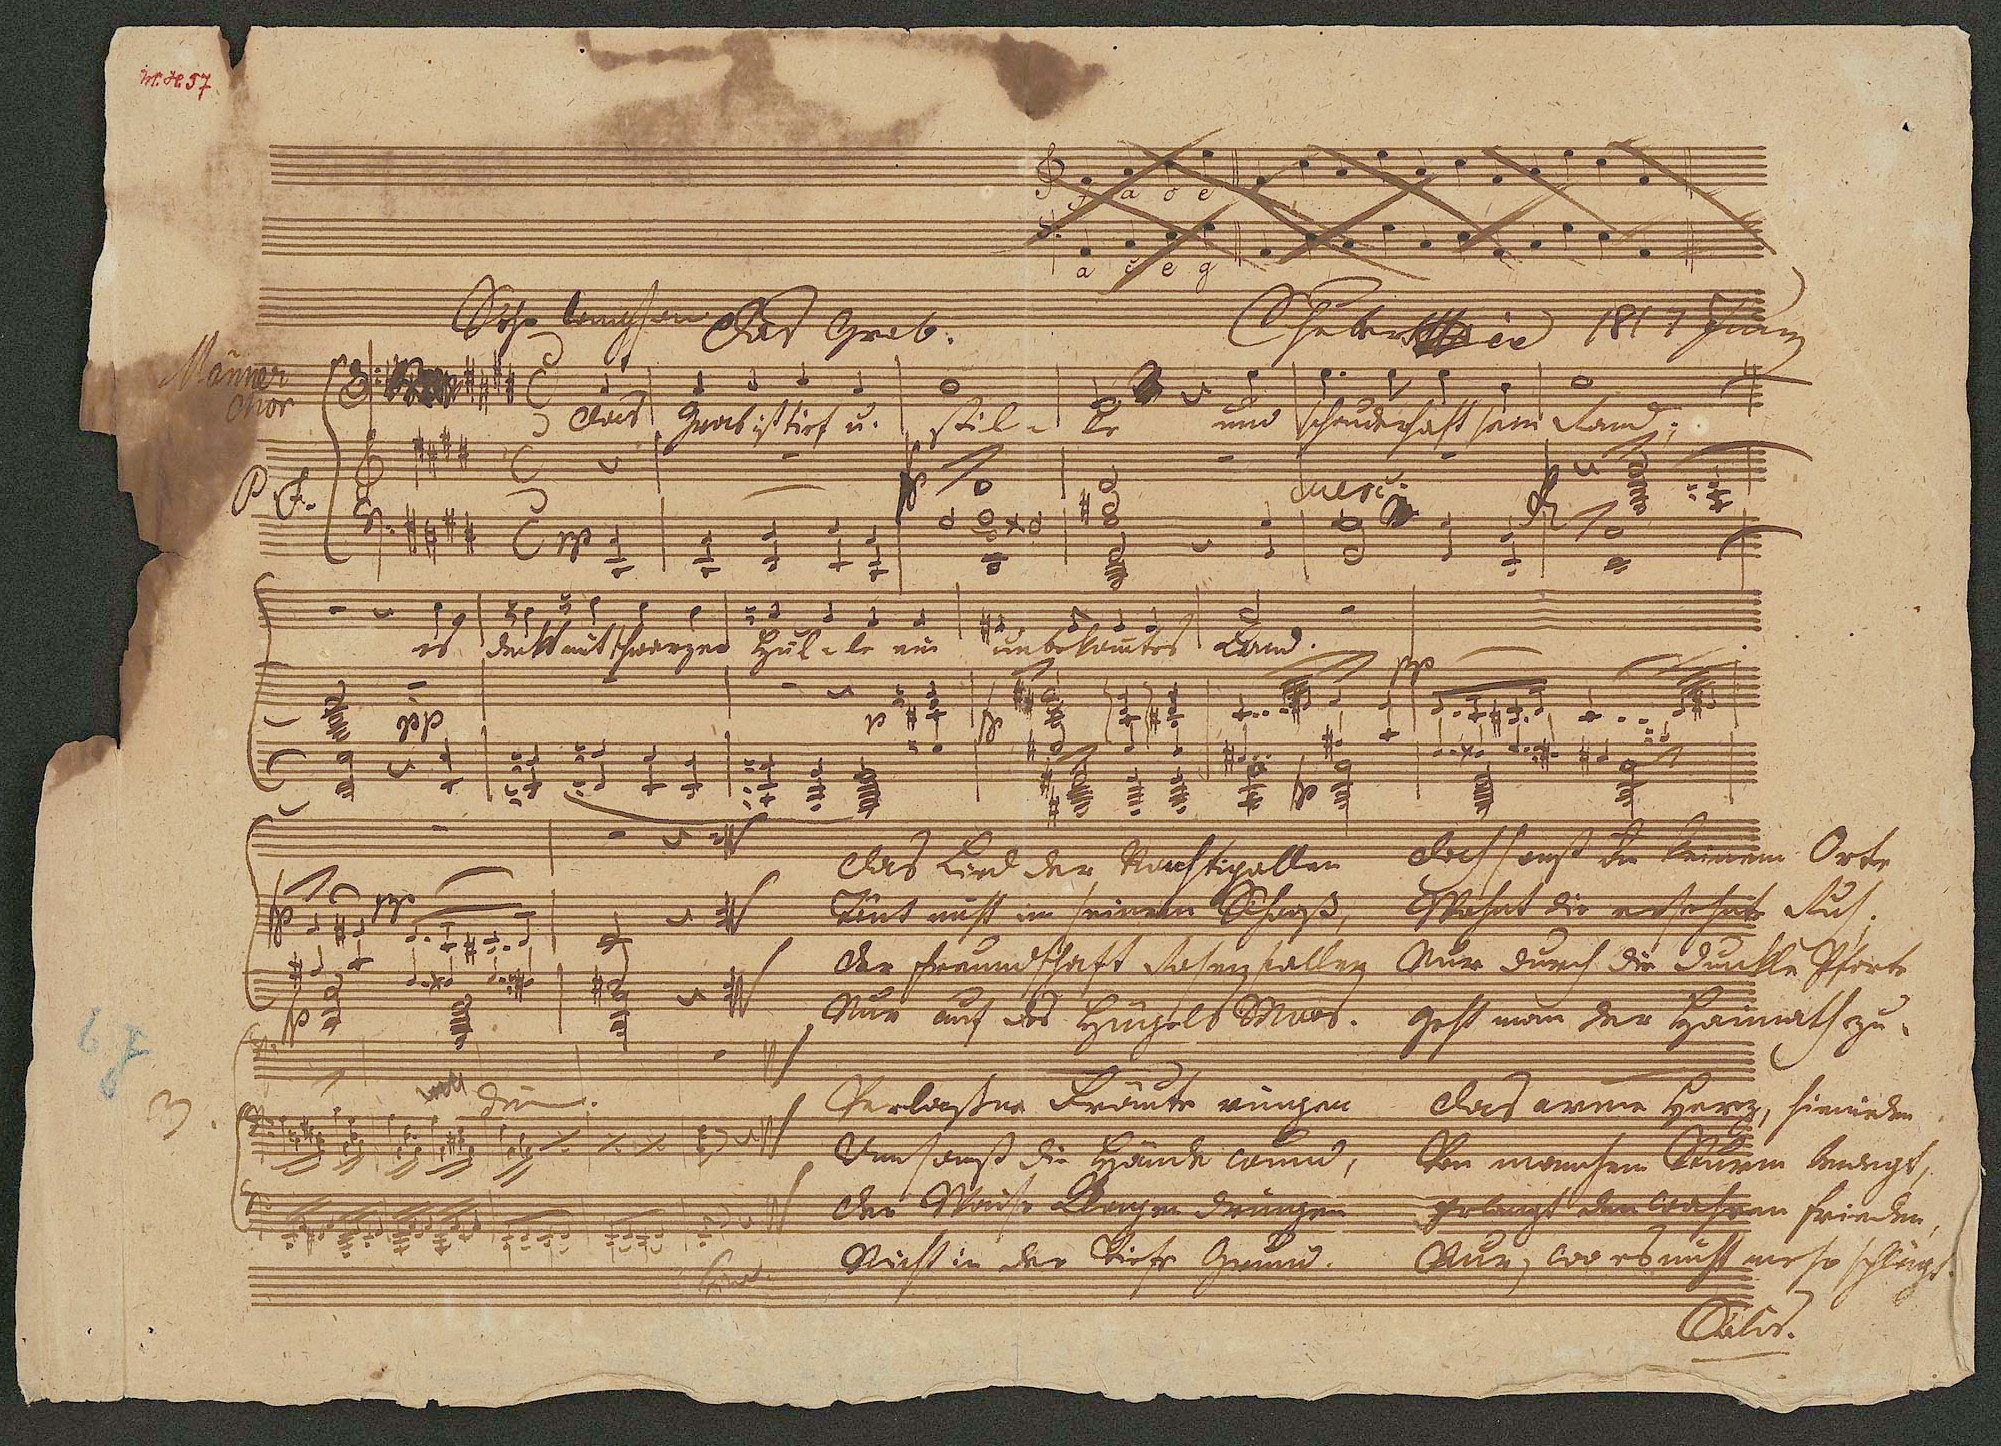 M.H. 57
f a c e
a c e g
Sehr langsam Das Grab. Schubert 1817 Juny
Männer
chor
Das Grab ist tief u. stil - le und schauderhaft sein Rand;
P.F.
pp
cresc:
es deckt mit schwarzer Hül - le ein unbekanntes Land.
pp
p
pp
Das Lied der Nachtigallen
Tönt nicht in seinem Schooß,
Der Freundschaft Rosen fallen
Nur auf des Hügels Moos.
Doch sonst an keinem Orte
Wohnt die ersehnte Ruh;
Nur durch die dunkle Pforte
Geht man der Heimath zu.
pp
p
3.
dim.
Verlaßne Bräute ringen
Umsonst die Hände wund,
Der Waise Klagen dringen
Nicht in der Tiefe Grund.
Das arme Herz, hienieden
Von manchem Sturm bewegt,
Erlangt den wahren Frieden,
Nur, wo es nicht mehr schlägt.
Salis.